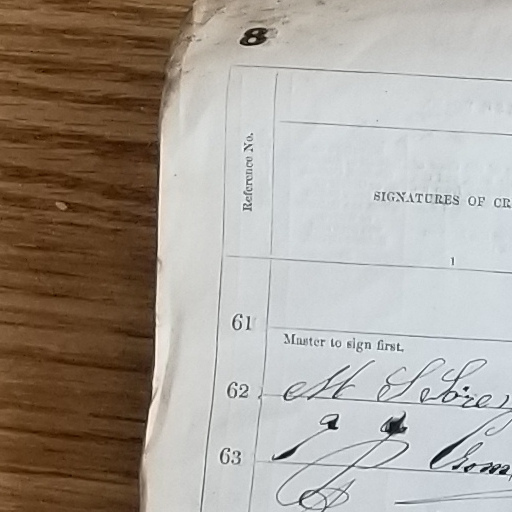 8
Reference No.
SIGNATURES OF CR
1
61
Master to sign first.
62 M S
63